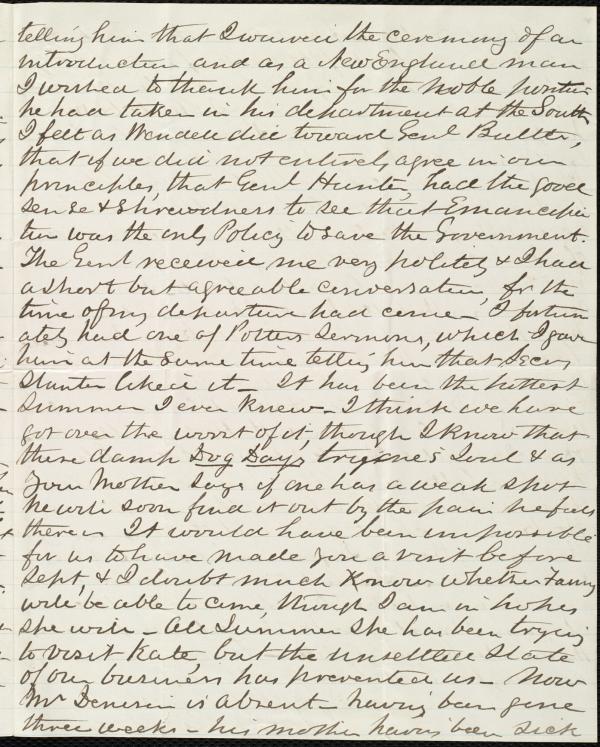 telling him that I waived the ceremony of an
introduction and as a New England man
I wished to thank him for the noble position
he had taken in his department at the South,
I felt as Wendell did toward Genl Butler,
that if we did not entirely agree in our
principles, that Genl Hunter, had the good
sense & Shrewdness to see that Emancipa
tion was the only Policy to save the Government.
The Genl received me very politely & I had
a short but agreeable conversation, for the
time of my departure had come - I fortun
ately had one of Potters Sermons, which I gave
him at the same time telling him that Secy
Stanton liked it - It has been the hottest
Summer I ever knew - I think we have
got over the worst of it, though I know that
these damp Dog Days try one's Soul & as
Your Mother says if one has a weak spot
he will soon find it out by the pain he feels
there - It would have been impossible
for us to have made you a visit before
Sept, & I doubt much know whether Fanny
will be able to come, though I am in hopes
she will - All Summer she has been trying
to visit Kate, but the unsettled state
of our business has prevented us - Now
Mr Denison is absent - having been gone
three weeks - his mother having been sick